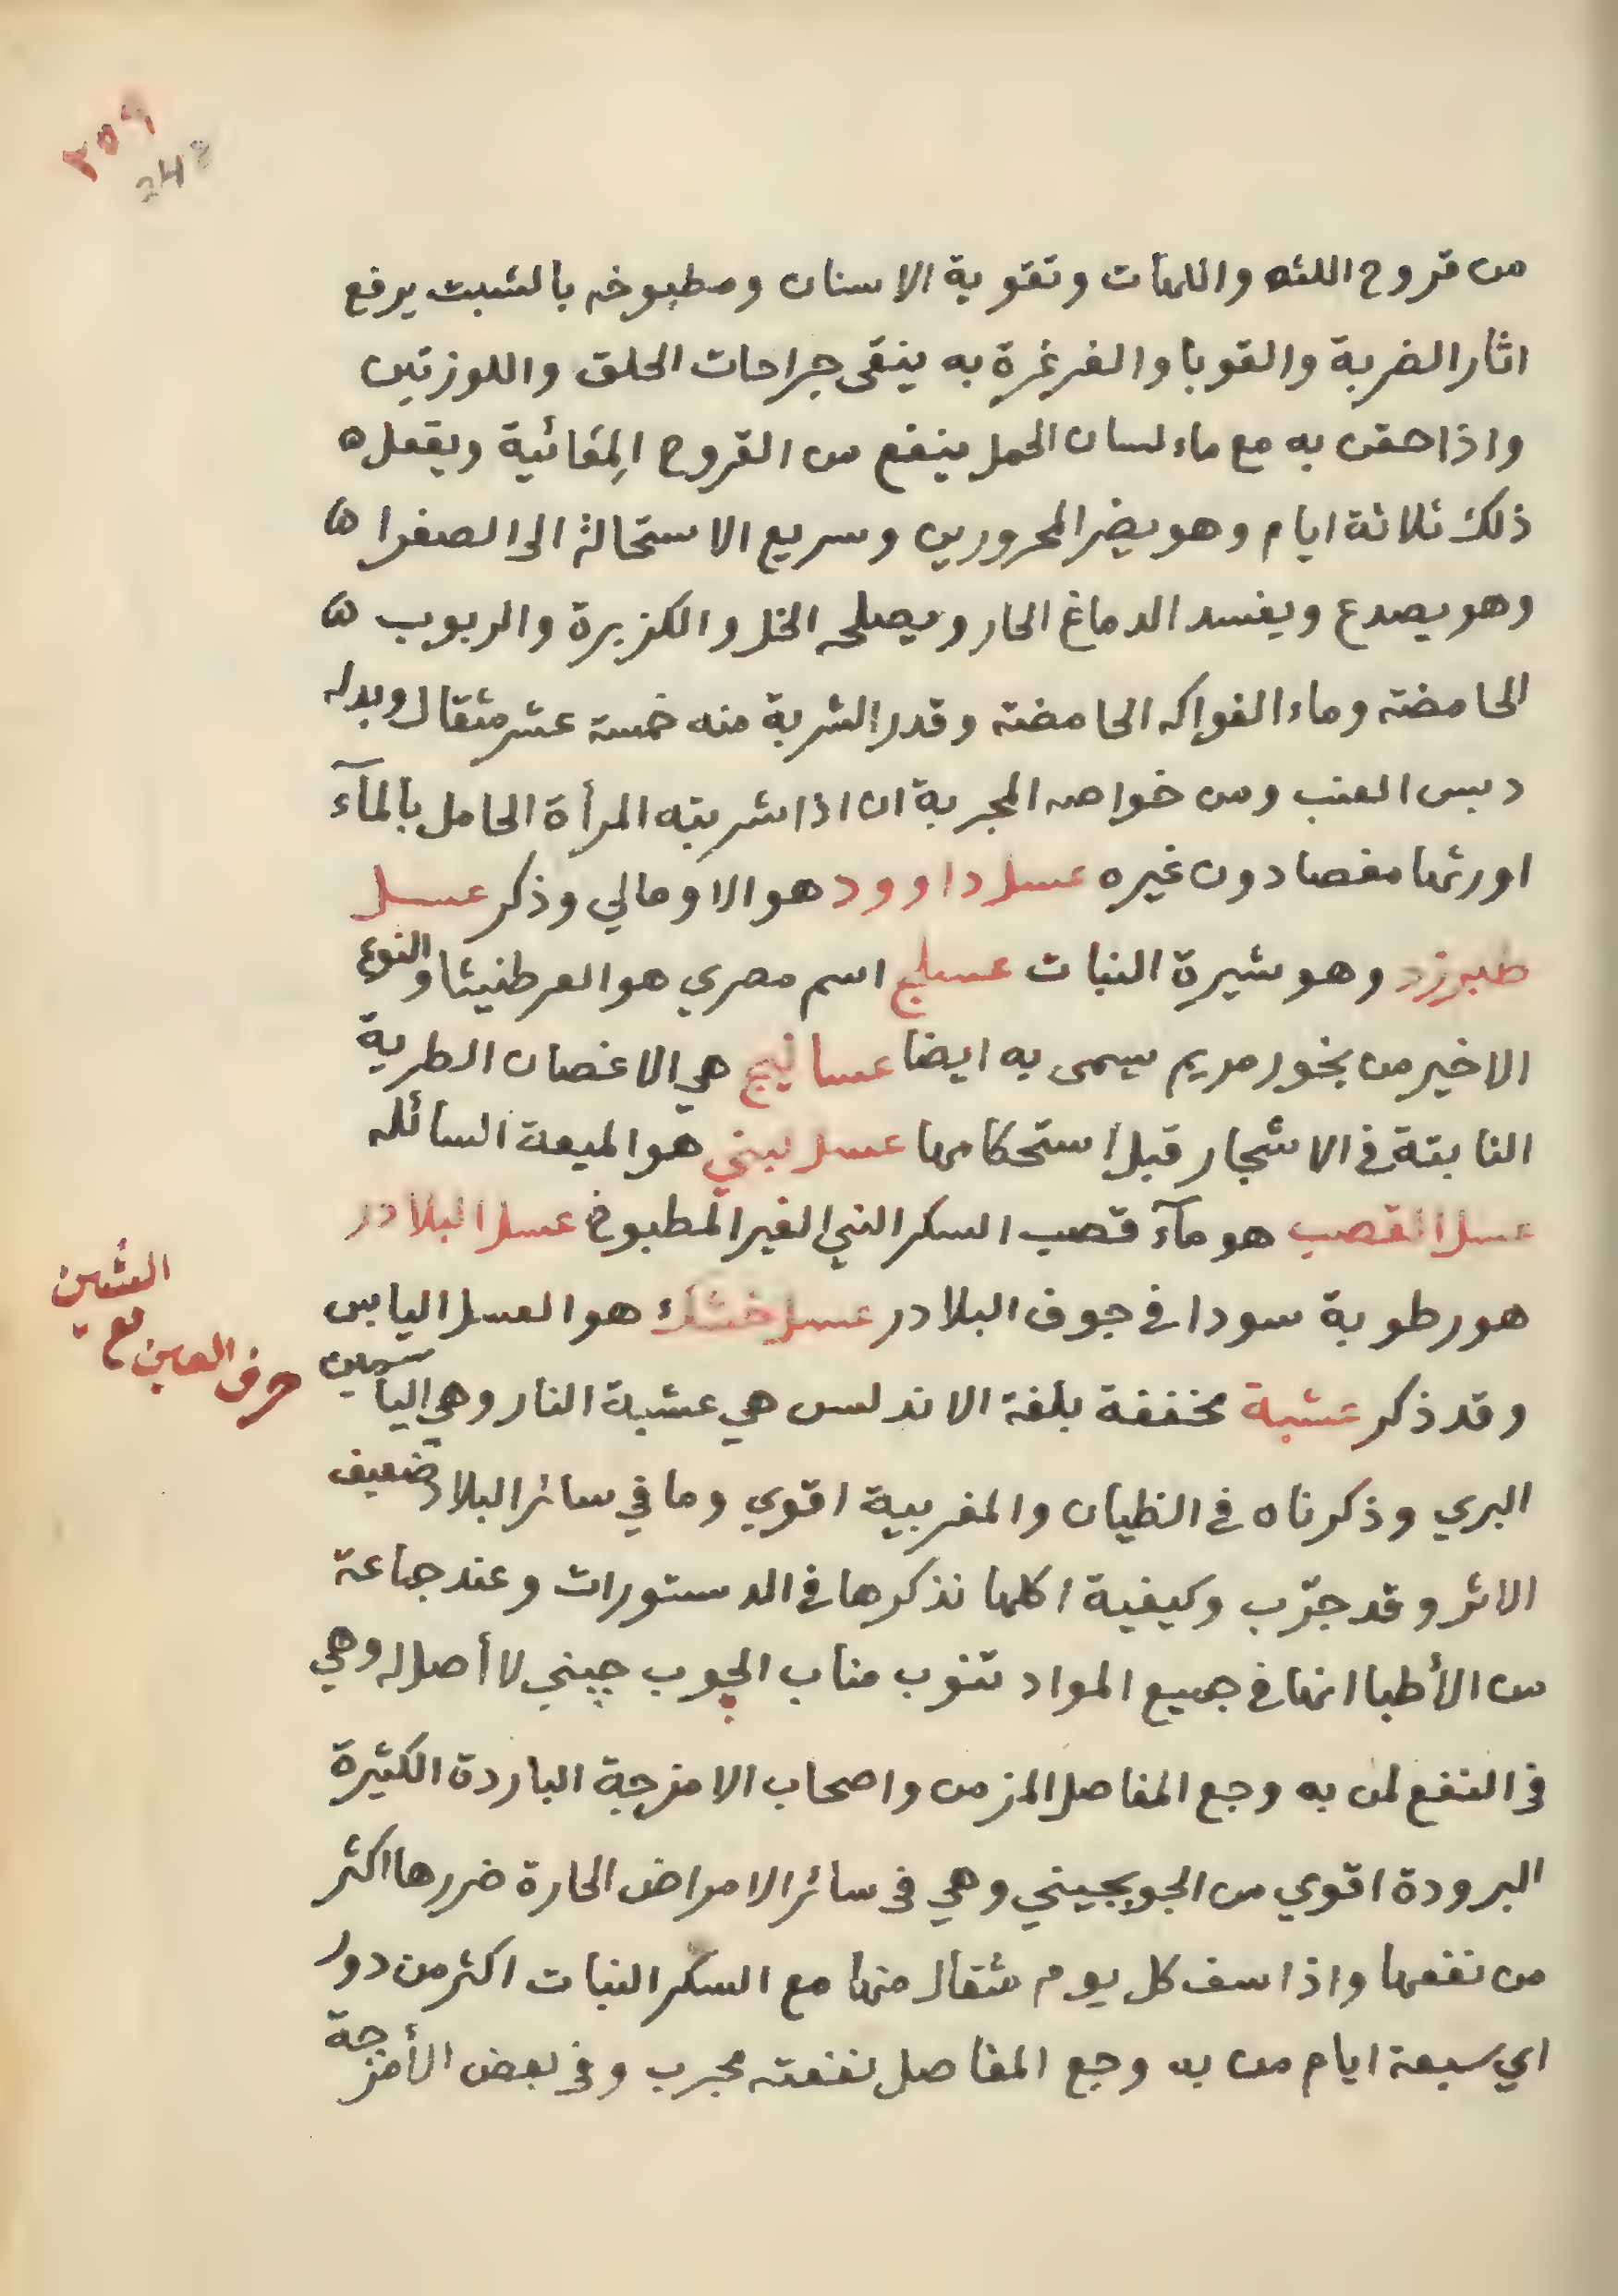 ٢٥٩
من قروح اللثه واللهات وتقوية الاسنان ومطبوخه بالشبت يرفع
اثار الضربة والقوبا والغرغرة به ينقى جراحات الحلق واللوزتين
واذا حقن به مع ماء لسان الحمل ينفع من القروح المِعَائية ويفعل ه
ذلك ثلاثة ايام وهو يضر المحرورين وسريع الاستحالة الى الصفرا ه
وهو يصدع ويفسد الدماغ الحار ويصلحه الخل والكزبرة والربوب ه
الحامضة وماء الفواكه الحامضة وقدر الشربة منه خمسة عشر مثقال وبدله
دبس العنب ومن خواصه المجربة ان اذا شربته المرأة الحامل بالمآء
اورثها مغصا دون غيره عسل داوود هو الاومالي وذكر عسل
طبرزد وهو شيرة النبات عسلج اسم مصري هو العرطنيثا والنوع
الاخير من بخور مريم سيمى به ايضا عساليج هي الاغصان الطرية
النابتة في الاشجار قبل استحكامها عسل لبني هو الميعة السائله
عسل القصب هو مآء قصب السكر الني الغير المطبوخ عسل البلادر
هو رطوبة سودا في جوف البلادر عسل خشك هو العسل اليابس
وقد ذكر عشبة مخففة بلغة الاندلس هي عشبة النار وهي الياسمين
البري وذكرناه في الظيان والمغربية اقوي وما في سائر البلاد ضعيف
الاثر وقد جرّب وكيفية اكلها نذكرها في الدستورات وعند جماعة
من الأطبا انها في جميع المواد تنوب مناب الچوب چيني لا أصل له وهي
في النفع لمن به وجع المفاصل المزمن واصحاب الامزجة الباردة الكثيرة
البرودة اقوي من الجوبچيني وهي في سائر الامراض الحارة ضررها اكثر
من نفعها واذا سف كل يوم مثقال منها مع السكر النبات اكثر من دور
اي سبعة ايام من به وجع المفاصل نفعته مجرب وفي بعض الأمزجة
حرف العين مع
الشين